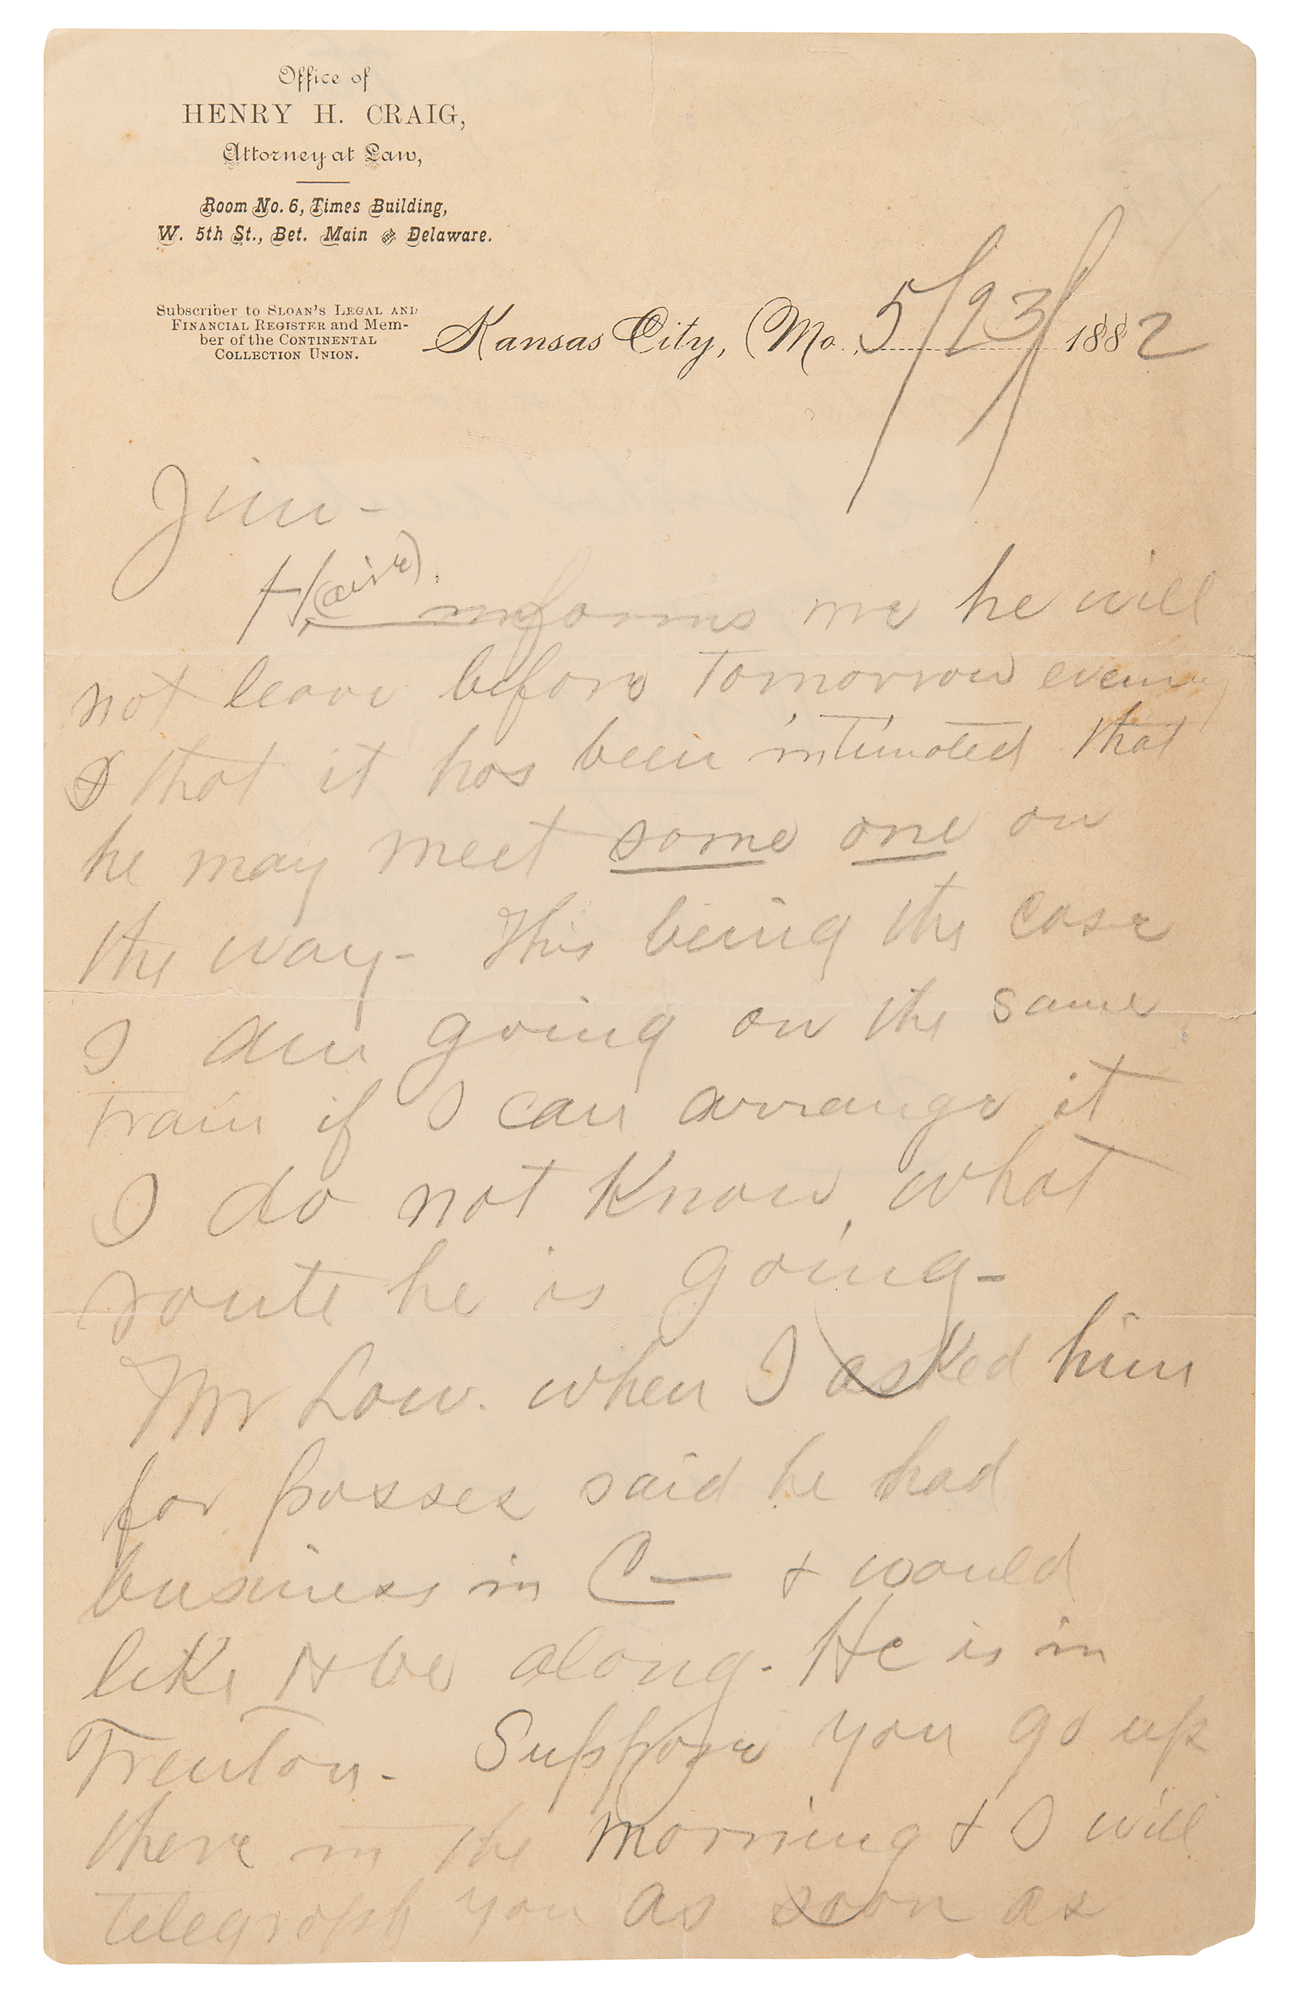 Office of
HENRY H. CRAIG,
Attorney at Law,
Room No. 6, Times Building,
W. 5th St., Bet. Main and Delaware.
Subscriber to SLOAN'S LEGAL AND
FINANCIAL REGISTER and Mem-
ber of the CONTINENTAL
COLLECTION UNION.
Kansas City, Mo. 5/23/ 1882
Jim-
H. informs me he will
not leave before tomorrow evening
& that it has been intimated that
he may meet some one on
the way- This being the case
I am going on the same
train if I can arrange it
I do not know what
route he is going-
Mr Low. when I asked him
for passes said he had
business in C— & would
like to be along. He is in
Trenton- Suppose you go up
there in the morning & I will
telegraph you as soon as